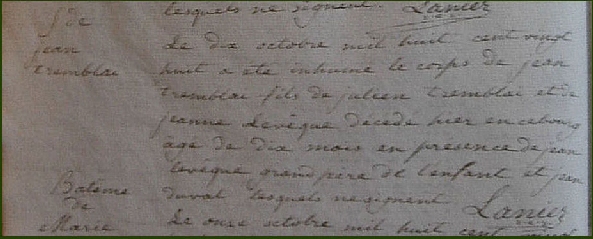 lesquels ne signent. Lanier
S de
jean
tremblai
Le dix octobre mil huit cent vingt
huit a ete inhume le corps de jean
tremblai fils de julien tremblai et de
jeanne Levêque décede hier en ce bourg
âgé de dix mois en présence de jean
levêque grand pere de l'enfant et jean
duval lesquels ne signent Lanier
Batême
de
Marie
Le onze octobre mil huit cent vingt